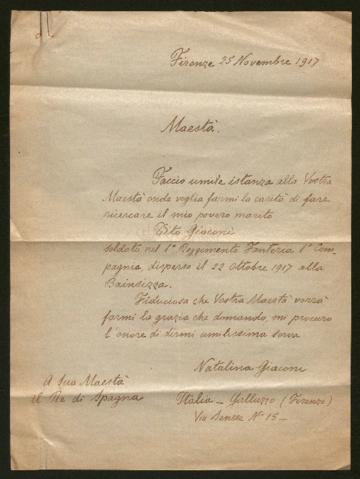 Firenze 25 Novembre 1917
Maestà.
Faccio umile istanza alla Vostra
Maestà onde voglia farmi la carità di fare
ricercare il mio povero marito
Tito Giaconi
soldato nel 1° Reggimento Fanteria 1ª Com-
pagnia, disperso il 22 Ottobre 1917 alla
Bainsizza.
Fiduciosa che Vostra Maestà vorrà
farmi la grazia che domando, mi procuro
l'onore di dirmi umilissima serva
Natalina Giaconi
A Sua Maestà
il Re di Spagna
Italia - Galluzzo (Firenze)
Via Senese N° 15 -